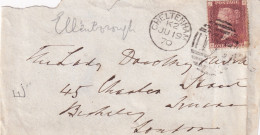 Ellenborough
CHELTENHAM
JU 19
70
The Lady Dorothy
45 Charles Street
Berkeley Square
London